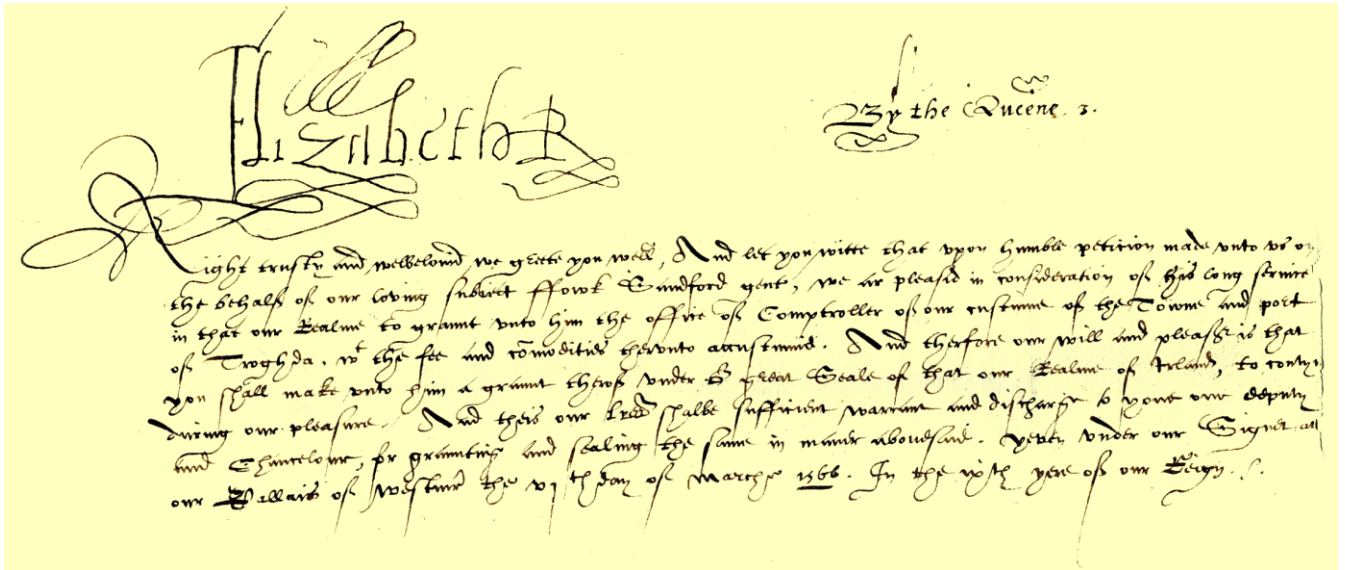 Elizabeth R
By the Queene. 3.
Right trusty and welbelovid, we greete you well, And let you witte that vpon humble peticion made vnto vs on
the behalf of our loving subiect ffowk Sandford gent, we ar pleasid in consideration of his long service
in that our Realme to graunt vnto him the office of Comptroller of our custume of the Towne and port
of Troghda. wt the fee and comodities thervnto accustumid. And therfore our will and pleasr is that
you shall make vnto him a graunt therof vnder great Seale of that our Realme of Irland, to contyn
during our pleasure. And theis our lres shalbe sufficient warrant and discharge to you our deputy
and Chancelour, for graunting and sealing the same in maner abovesaid. yeven vnder our Signet at
our Pallais of westmr the vj th day of Marche 1566. In the ixth yere of our Reign.